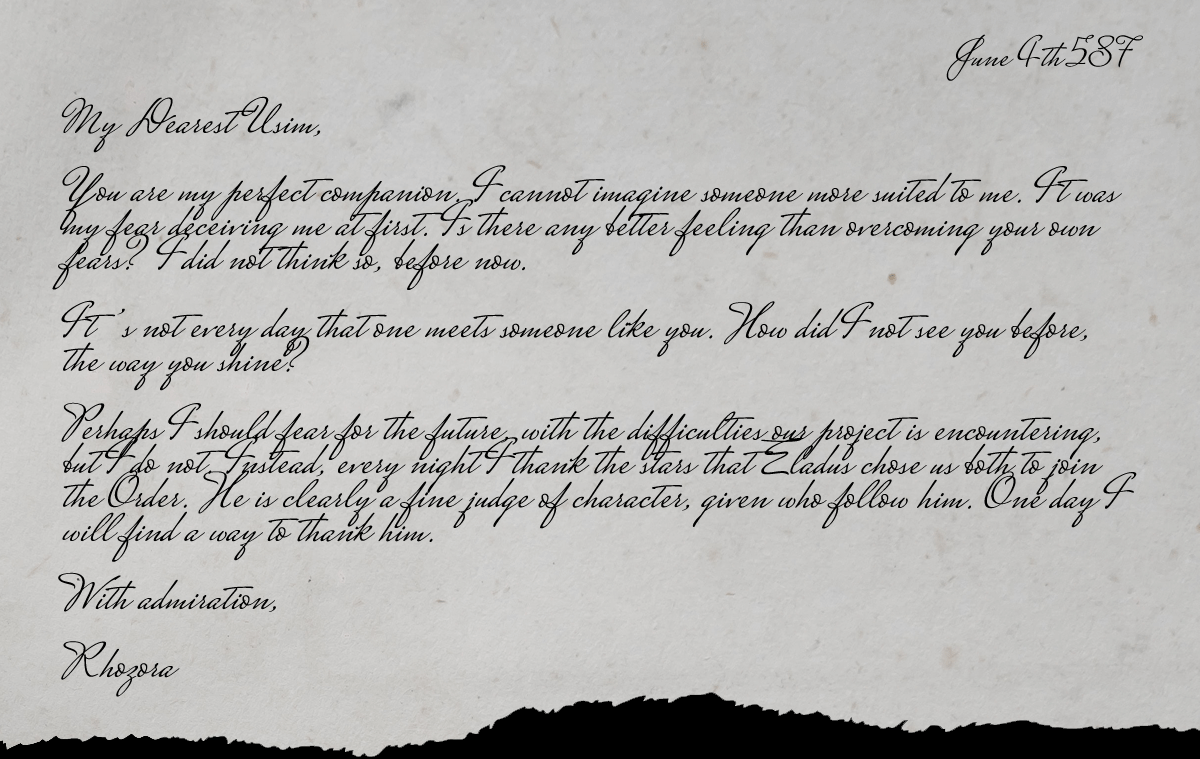 June 4th 587
My Dearest Usim,
You are my perfect companion. I cannot imagine someone more suited to me. It was
my fear deceiving me at first. Is there any better feeling than overcoming your own
fears? I did not think so, before now.
It's not every day that one meets someone like you. How did I not see you before,
the way you shine?
Perhaps I should fear for the future, with the difficulties our project is encountering,
but I do not. Instead, every night I thank the stars that Eladus chose us both to join
the Order. He is clearly a fine judge of character, given who follow him. One day I
will find a way to thank him.
With admiration,
Rhozora